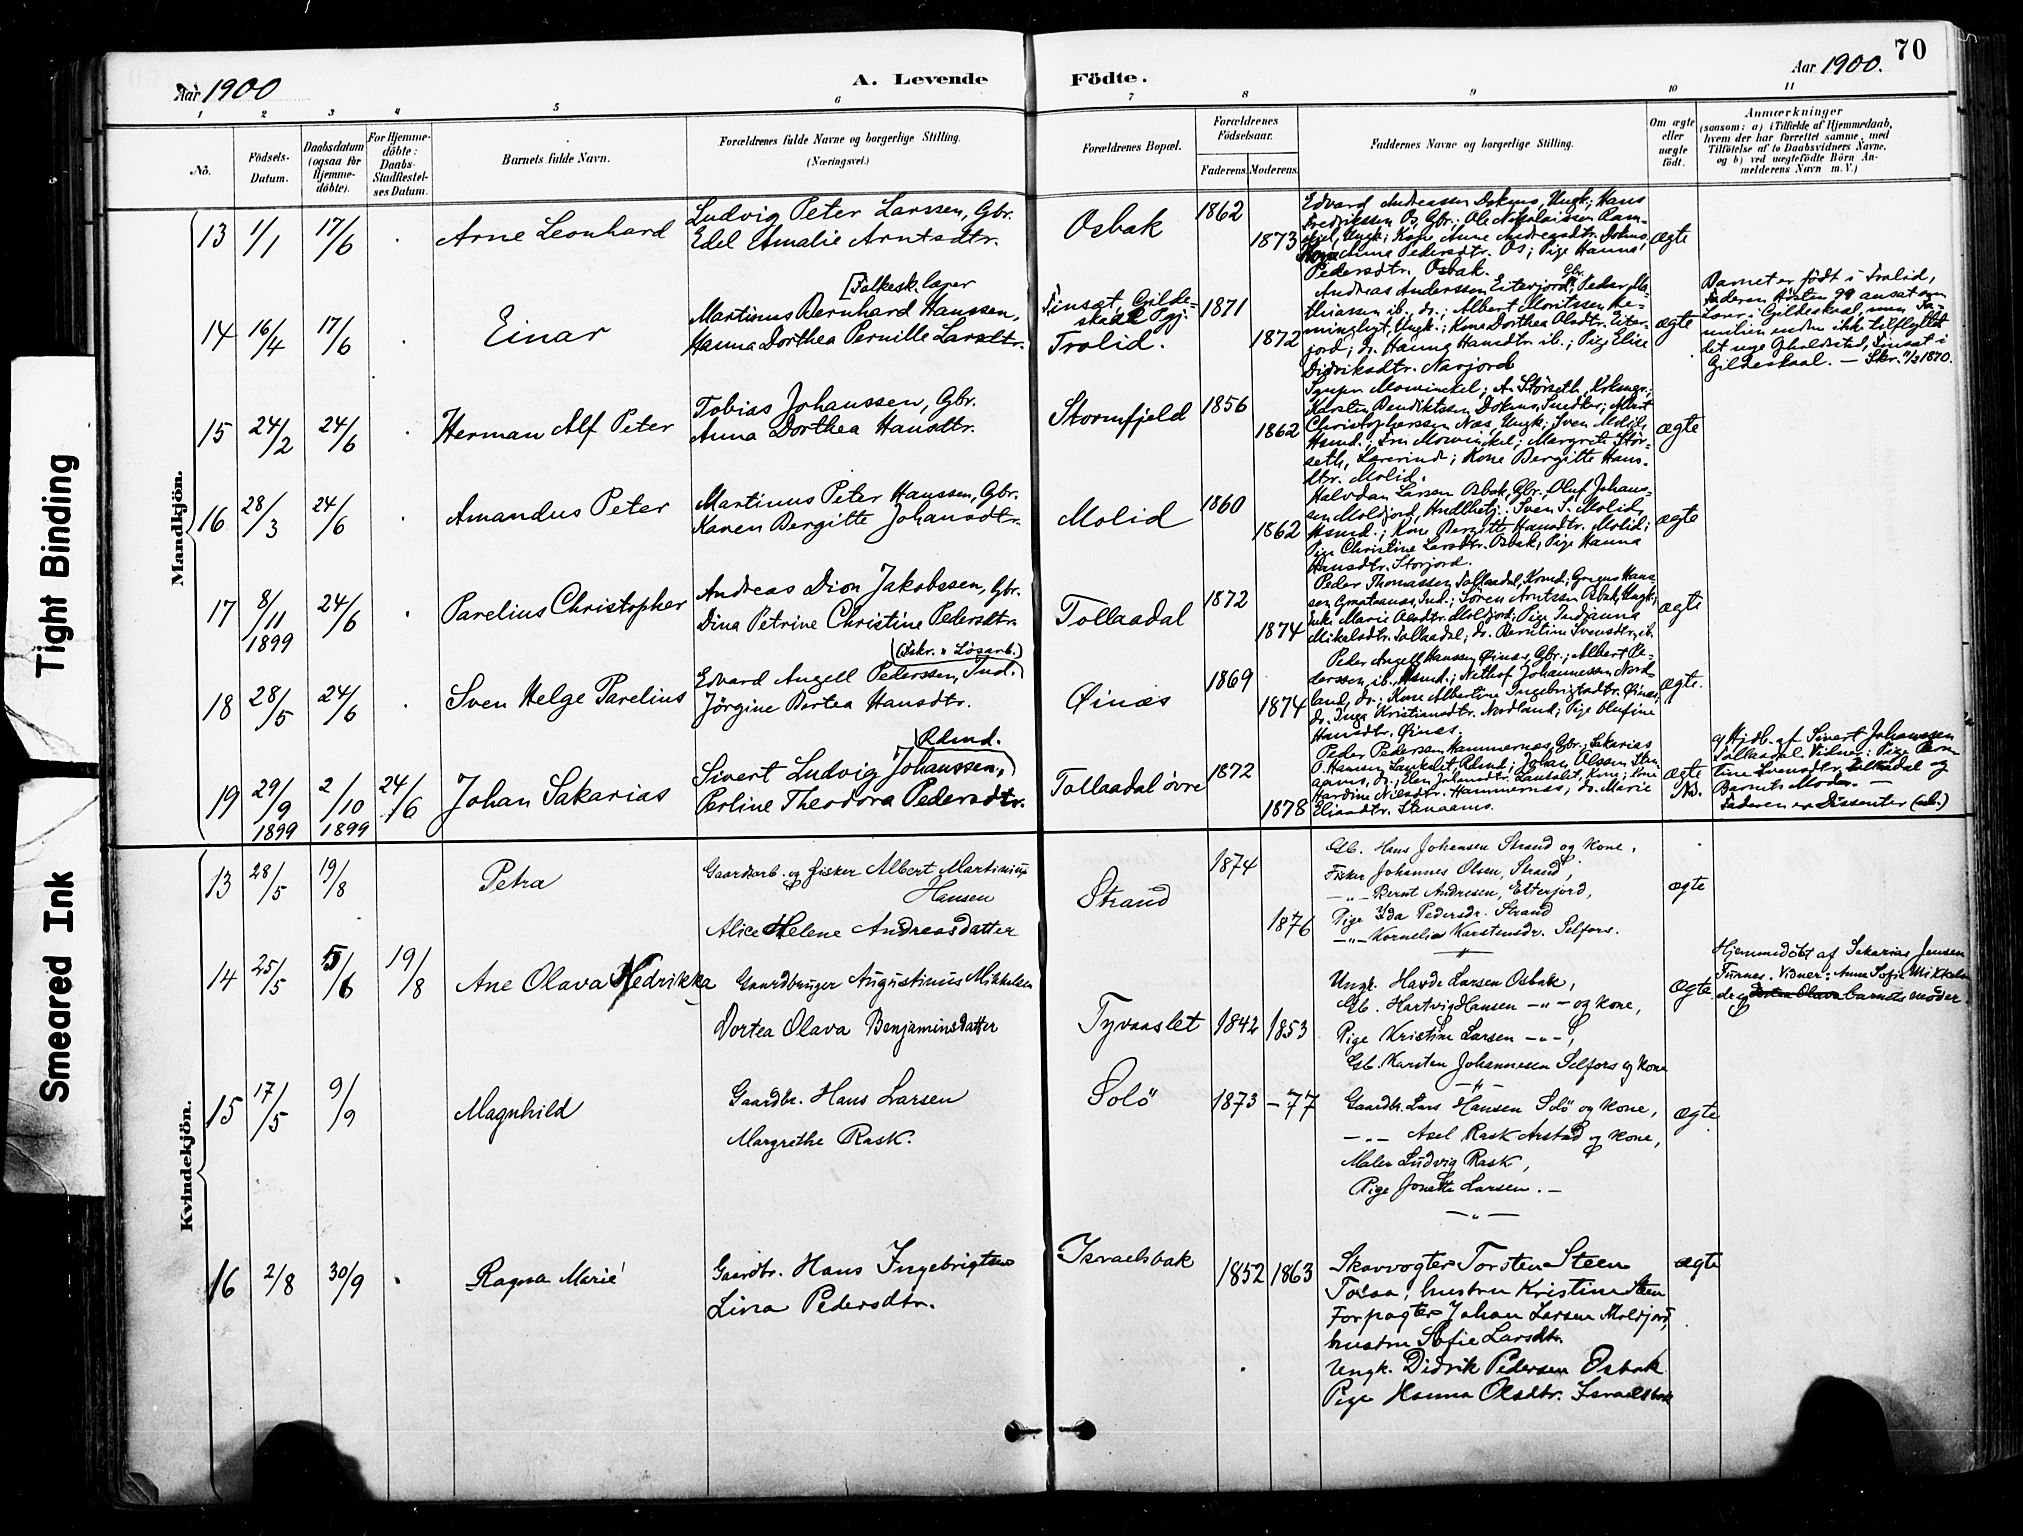 Tight Binding
Smeared Ink
70
Aar 1900
A. Levende Födte.
Aar 1900.
1 2 3 4 5 6 7 8 9 10 11
No.
Födsels-
Datum.
Daabsdatum
(ogsaa for
Hjemme-
döbte).
For Hjemme-
döbte:
Daabs-
Stadfæstel-
ses Datum.
Barnets fulde Navn.
Forældrenes fulde Navne og borgerlige Stilling.
(Næringsvei.)
Forældrenes Bopæl.
Forældrenes
Födselsaar.
Faderens. Moderens.
Faddernes Navne og borgerlige Stilling.
Om ægte
eller
uægte
födt.
Anmærkninger
(saasom: a) i Tilfælde af Hjemmedaab,
hvem der har forrettet samme, med
Tilföielse af to Daabsvidners Navne,
og b) ved uægtefödte Börn An-
melderens Navn m. V.)
Mandkjön.
13 1/1 17/6 Arne Leonhard
Ludvig Peter Larssen, Gbr.
Edel Amalie Arntsdtr.
Osbak 1862 1873
Edvard Andreassen Dokmo, Ungk; Hans
Fredrikssen Os, Gbr.; Ole Nikolaissen
Ungk; Kone Anne Andreasdtr. Dokmo,
Kone Anna Pedersdtr. Os; Pige Hanna
Pedersdtr. Osbak.
ægte
14 16/4 17/6 Einar
[Folkesk.lærer
Martinus Bernhard Hanssen,
Hanna Dorthea Pernille Larsdtr.
Finsæt, Gilde-
skaal Pgj.
Trolid.
1871 1872
Andreas Anderssen Eiterjord, Gbr.; Peder Ma-
thiassen ib., do.; Albert Moritssen
Ungk.; Kone Dorthea Olsdtr. Eiter-
jord; do. Hanna Hansdtr. ib.; Pige Elise
Didriksdtr. Nasjord
ægte
Barnet er født i Trolid,
Faderen Høsten 99 ansat som
Lærer i Gildeskaal, men Fa-
milien endnu ikke tilflyttet
det nye Opholdssted, Finsæt i
Gildeskaal. — Skr. 11/3 1870.
15 24/2 24/6 Herman Alf Peter
Tobias Johanssen, Gbr.
Anna Dorthea Hansdtr.
Stormfjeld 1856 1862
Mowinckel; A. Størseth, Kirkesgr.;
Karsten Bendiktssen Dokmo, Snedker; Albert
Christopherssen Næs, Ungk; Sven Molid,
Hsmd.; Fru Mowinckel; Margrete Stør-
seth, Lærerinde; Kone Bergitte Hans-
dtr. Molid.
ægte
16 28/3 24/6 Amandus Peter
Martinus Peter Hanssen, Gbr.
Karen Bergitte Johansdtr.
Molid 1860 1862
Halvdan Larsen Osbak, Gbr., Oluf Johans-
sen Moldjord, Handlbetj.; Sven S. Molid,
Hsmd.; Kone Bergitte Hansdtr. Molid;
Pige Christine Larsdtr. Osbak, Pige Hanna
Hansdtr. Storjord.
ægte
17 8/11 1899 24/6 Parelius Christopher
Andreas Dion Jakobssen, Gbr.
Dina Petrine Christine Pedersdtr.
Tollaadal 1872 1874
Peder Thomassen Tollaadal, Hans-
sen Ind.; Søren Arntssen Osbak, Ungk;
Enke Marie Olsdtr. Moldjord; Pige Indianna
Mikelsdtr. Tollaadal; do. Berntine Svensdtr. ib.
ægte
18 28/5 24/6 Sven Helge Parelius
(Fskr. & Løsarb.)
Edvard Angell Pederssen, Ind.
Jørgine Bertea Hansdtr.
Øinæs 1869 1874
Peder Angell Hanssen Øinæs, Gbr.; Albert Pe-
derssen ib., Hsmd.; Johannessen Nord-
land, do.; Kone Albertine Ingebrigtsdtr. Øinæs,
do. Inga Kristiansdtr. Nordland; Pige Olufine
Hansdtr. Øinæs.
ægte.
19 29/9 1899 2/10 1899 24/6 Johan Sakarias
(Rdmd.
Sivert Ludvig Johanssen,
Perline Theodora Pedersdtr.
Tollaadal øvre 1872 1878
Peder Pedersen Hammernes, Gbr.; Sakarias
O. Hansen Rdmd.; Johan Olssen
do.; Elen Johansdtr. Kone; Kone
Hardine Nilsdtr. Hammernes, do. Marie
Eliasdtr.
ægte
Nd.
Hjdb. af Sivert Johanssen
Tollaadal. Vidner: Pige Bern-
tine Svensdtr. Tollaadal og
Barnets Moder. —
Faderen er Dissenter
Kvindekjön.
13 28/5 19/8 Petra
Gaardarb. og Fisker Albert Martinius
Hansen
Alice Helene Andreasdatter
Strand 1874 1876
Gb. Hans Johansen Strand og Kone,
Fisker Johannes Olsen, Strand,
—„— Bernt Andresen, Etterjord,
Pige Ida Pedersdr. Strand
—„— Kornelia Karstensdr. Selfors.
ægte
14 25/5 5/6 19/8 Ane Olava Hedrikka
Gaardbruger Augustinus Mikkelsen
Dortea Olava Benjaminsdatter
Tyvaaslet 1842 1853
Ungk. Havde Larsen Osbak,
Gb. Hartvig Hansen —„— og Kone,
Pige Kristine Larsen —„—,
Gb. Karsten Johannesen Selfors og Kone
ægte
Hjemmedöbt af Sakarias Jensen
Furnes. Vidner: Anna Sofie Mikkels
dr og Dortea Olava barnets moder.
15 17/5 9/9 Magnhild
Gaardbr. Hans Larsen
Margrethe Rask.
Solö 1873 -77
Gaardbr. Lars Hansen Solö og Kone,
—„— Axel Rask Arstad og Kone,
Maler Ludvig Rask,
Pige Jonette Larsen. —
ægte
16 2/8 30/9 Ragna Marie
Gaardbr. Hans Ingebrigtsen
Lina Pedersdtr.
Israelsbak 1852 1863
Skovvogter Torsten Steen
Tolaa, hustru Kristine Steen
Forpagter Johan Larsen Moldjord,
hustru Sofie Larsdtr.
Ungk. Didrik Pedersen Osbak
Pige Hanna Olsdtr. Israelsbak
ægte